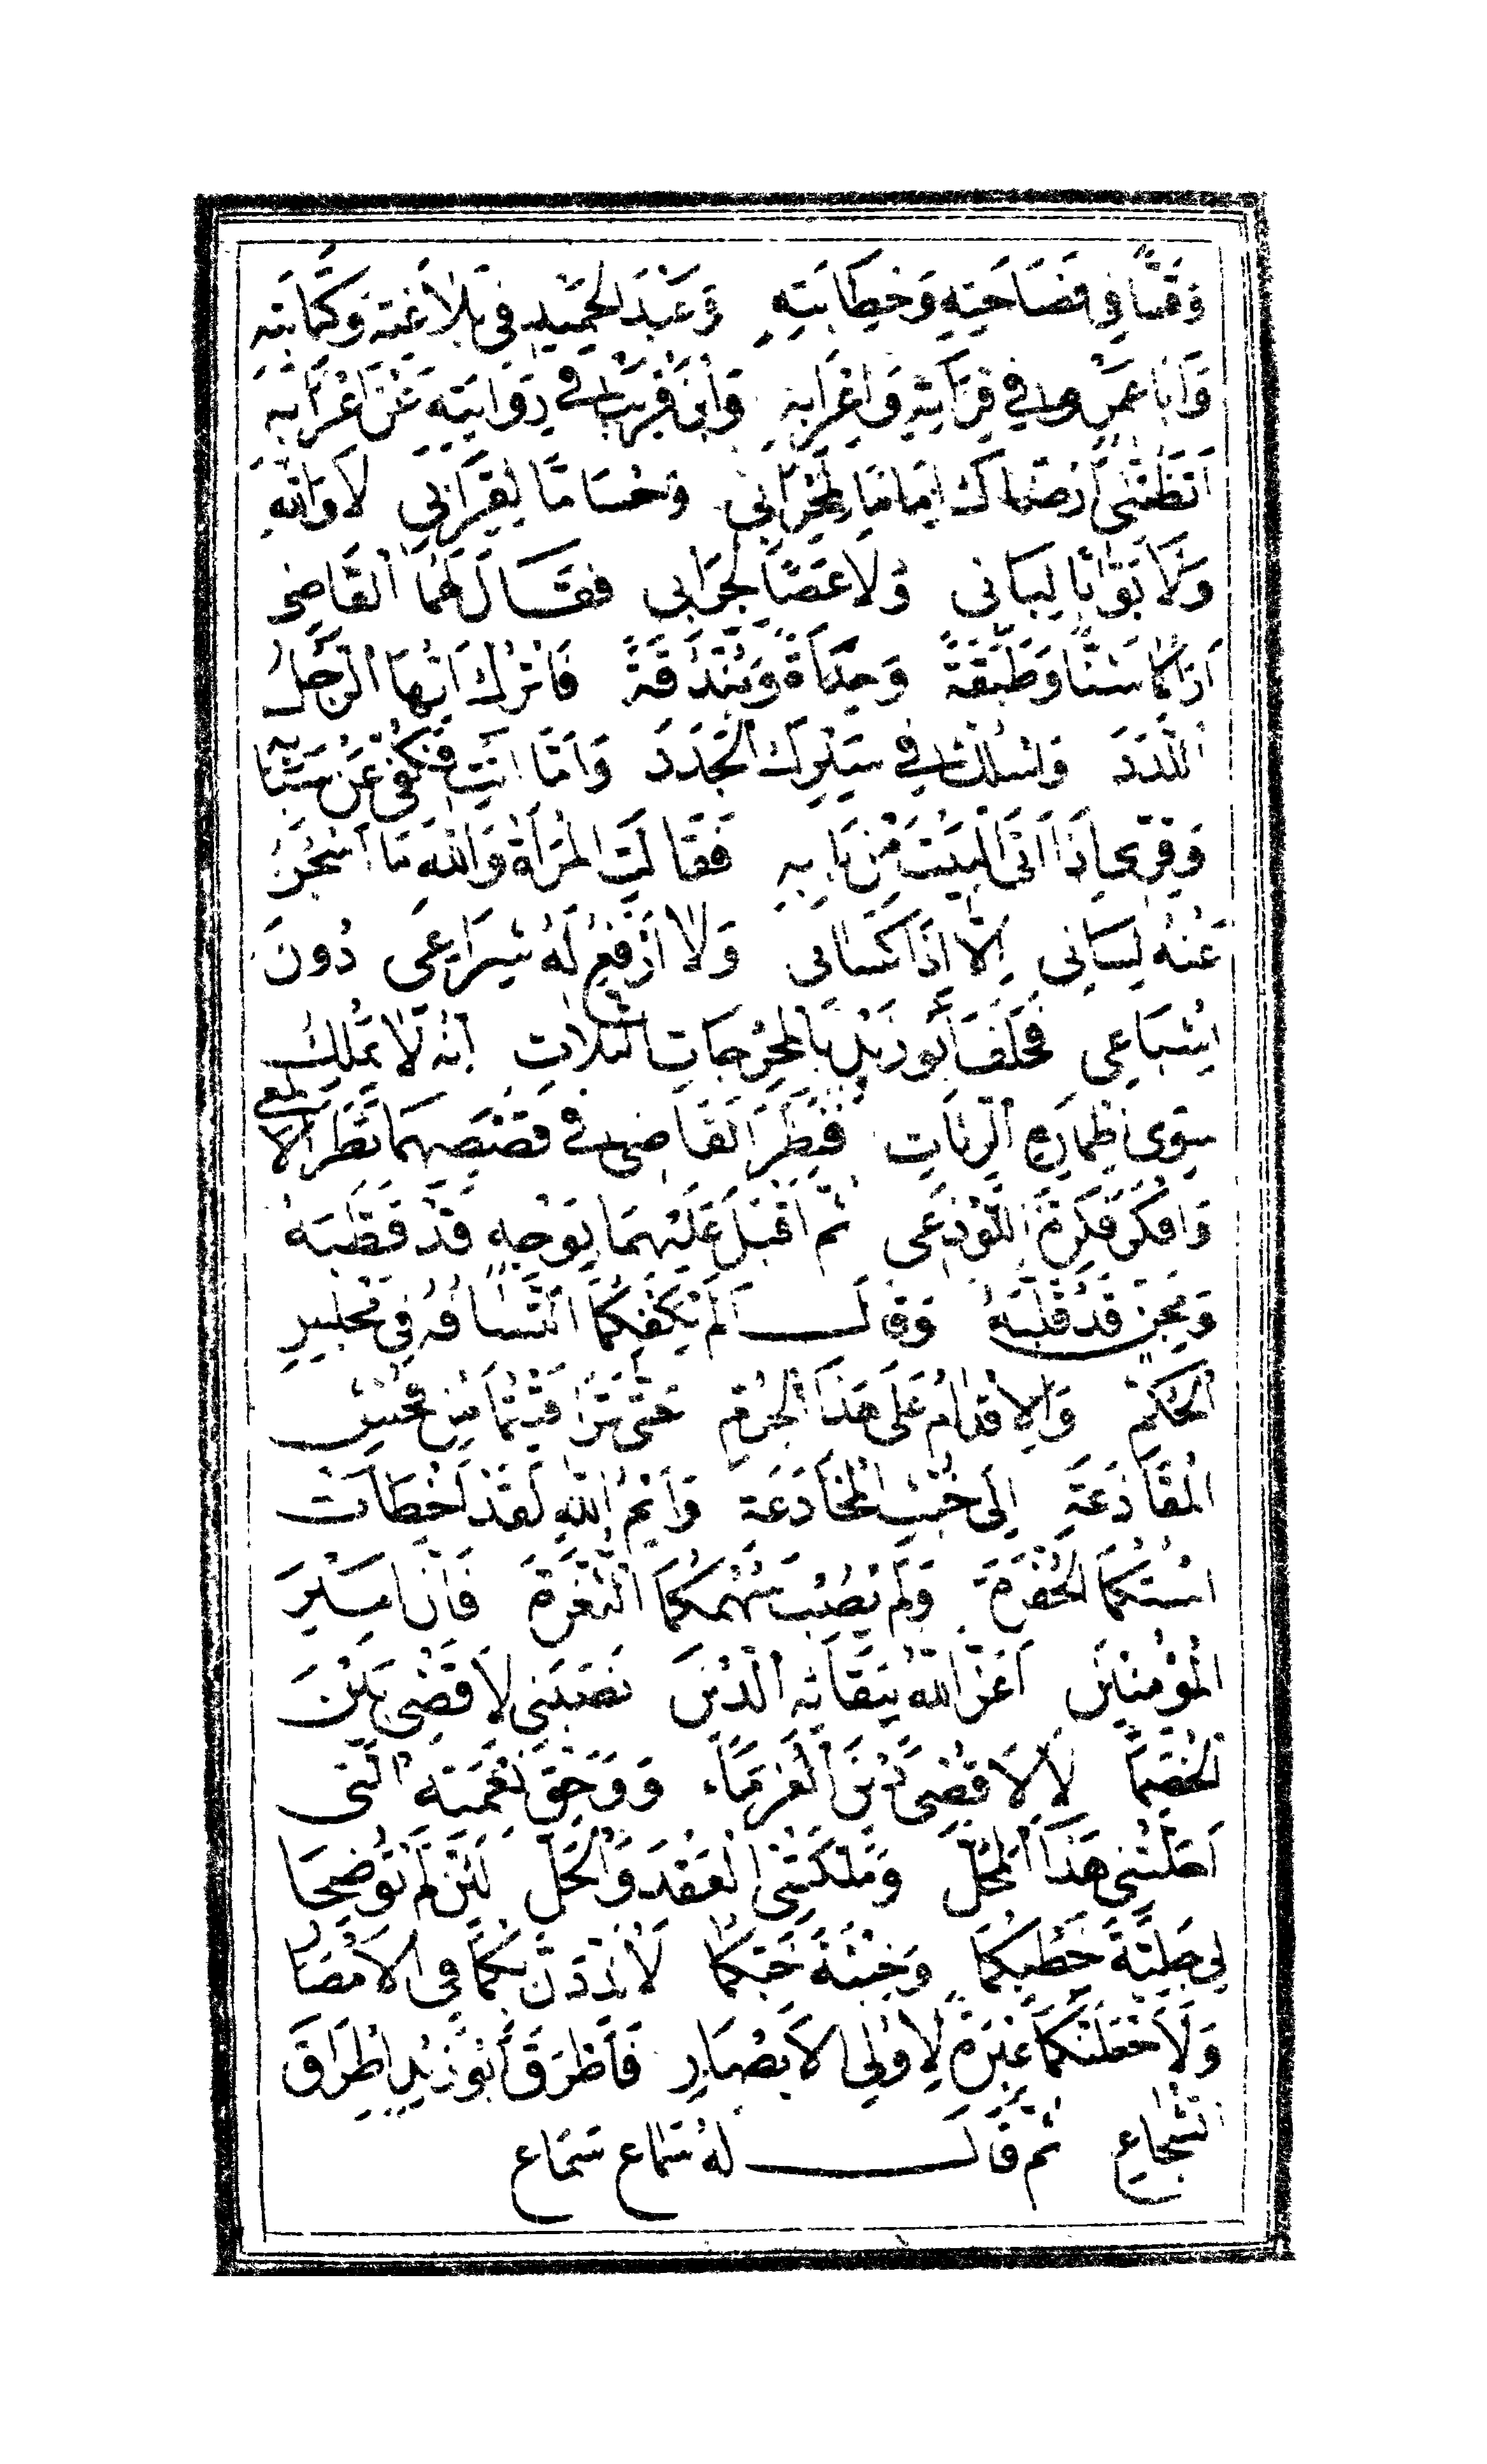 وَقُسًّا فِي فَصَاحَتِهِ وَخِطَابَتِهِ وَعَبْدَ الْحَمِيدِ فِي بَلَاغَتِهِ وَكِتَابَتِهِ
وَأَبَا عَمْرٍو فِي قِرَاءَتِهِ وَإِعْرَابِهِ وَابْنَ قُرَيْبٍ فِي رِوَايَتِهِ عَنْ أَعْرَابِهِ
أَتَظُنُّنِي أَرْضَاكَ إِمَامًا لِمِحْرَابِي وَحُسَامًا لِقِرَابِي لَا وَاللهِ
وَلَا بَوَّابًا لِبَابِي وَلَا عَصًا لِجِرَابِي فَقَالَ لَهُمَا الْقَاضِي
أَرَاكُمَا شَنًّا وَطَبَقَةً وَحِدَأَةً وَبُنْدُقَةً فَاتْرُكْ أَيُّهَا الرَّجُلُ
اللَّدَدَ وَاسْلُكْ فِي سَيْرِكَ الْجَدَدَ وَأَمَّا أَنْتِ فَكُفِّي عَنْ سِبَابِهِ
وَقِرِّي إِذَا أَتَى الْبَيْتَ مِنْ بَابِهِ فَقَالَتِ الْمَرْأَةُ وَاللهِ مَا أَسْجُنُ
عَنْهُ لِسَانِي إِلَّا إِذَا كَسَانِي وَلَا أَرْفَعُ لَهُ شِرَاعِي دُونَ
إِشْبَاعِي فَحَلَفَ أَبُو زَيْدٍ بِالْمُحْرِجَاتِ الثَّلَاثِ أَنَّهُ لَا يَمْلِكُ
سِوَى أَطْمَارِهِ الرِّثَاثِ فَنَظَرَ الْقَاضِي فِي قَصَصِهِمَا نَظَرَ الْأَلْمَعِي
وَأَفْكَرَ فِكْرَةَ اللَّوْذَعِي ثُمَّ أَقْبَلَ عَلَيْهِمَا بِوَجْهٍ قَدْ قَطَّبَهُ
وَمِجَنٍّ قَدْ قَلَبَهُ وَقَالَ أَلَمْ يَكْفِكُمَا التَّسَافُهُ فِي مَجْلِسِ
الْحُكْمِ وَالْإِقْدَامُ عَلَى هَذَا الْجُرْمِ حَتَّى تَرَاقَيْتُمَا مِنْ فُحْشِ
الْمُقَاذَعَةِ إِلَى خُبْثِ الْمُخَادَعَةِ وَأَيْمُ اللهِ لَقَدْ أَخْطَأَتْ
اسْتُكُمَا الْحُفْرَةَ وَلَمْ يُصِبْ سَهْمُكُمَا الثُّغْرَةَ فَإِنَّ أَمِيرَ
الْمُؤْمِنِينَ أَعَزَّ اللهُ بِبَقَائِهِ الدِّينَ نَصَبَنِي لِأَقْضِيَ بَيْنَ
الْخُصَمَا لَا لِأَقْضِيَ دَيْنَ الْغُرَمَاءِ وَوَحَقِّ نِعْمَتِهِ الَّتِي
أَحَلَّتْنِي هَذَا الْمَحَلَّ وَمَلَّكَتْنِي الْعَقْدَ وَالْحَلَّ لَئِنْ لَمْ تُوضِحَا
لِي جَلِيَّةَ خَطْبِكُمَا وَخَبِيئَةَ خِبِّكُمَا لَأُنَدِّدَنَّ بِكُمَا فِي الْأَمْصَارِ
وَلَأَجْعَلَنَّكُمَا عِبْرَةً لِأُولِي الْأَبْصَارِ فَأَطْرَقَ أَبُو زَيْدٍ إِطْرَاقَ
الشُّجَاعِ ثُمَّ قَالَ لَهُ سَمَاعِ سَمَاعِ